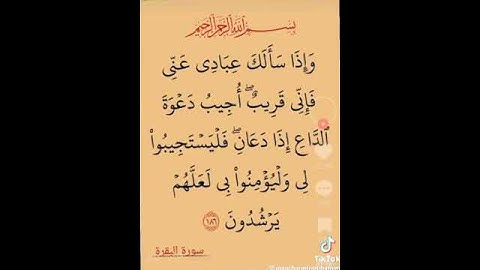 بسم الله الرحمن الرحيم
وَإِذَا سَأَلَكَ عِبَادِى عَنِّى
فَإِنِّى قَرِيبٌۖ أُجِيبُ دَعْوَةَ
ٱلدَّاعِ إِذَا دَعَانِۖ فَلْيَسْتَجِيبُوا۟
لِى وَلْيُؤْمِنُوا۟ بِى لَعَلَّهُمْ
يَرْشُدُونَ ١٨٦
سورة البقرة
TikTok